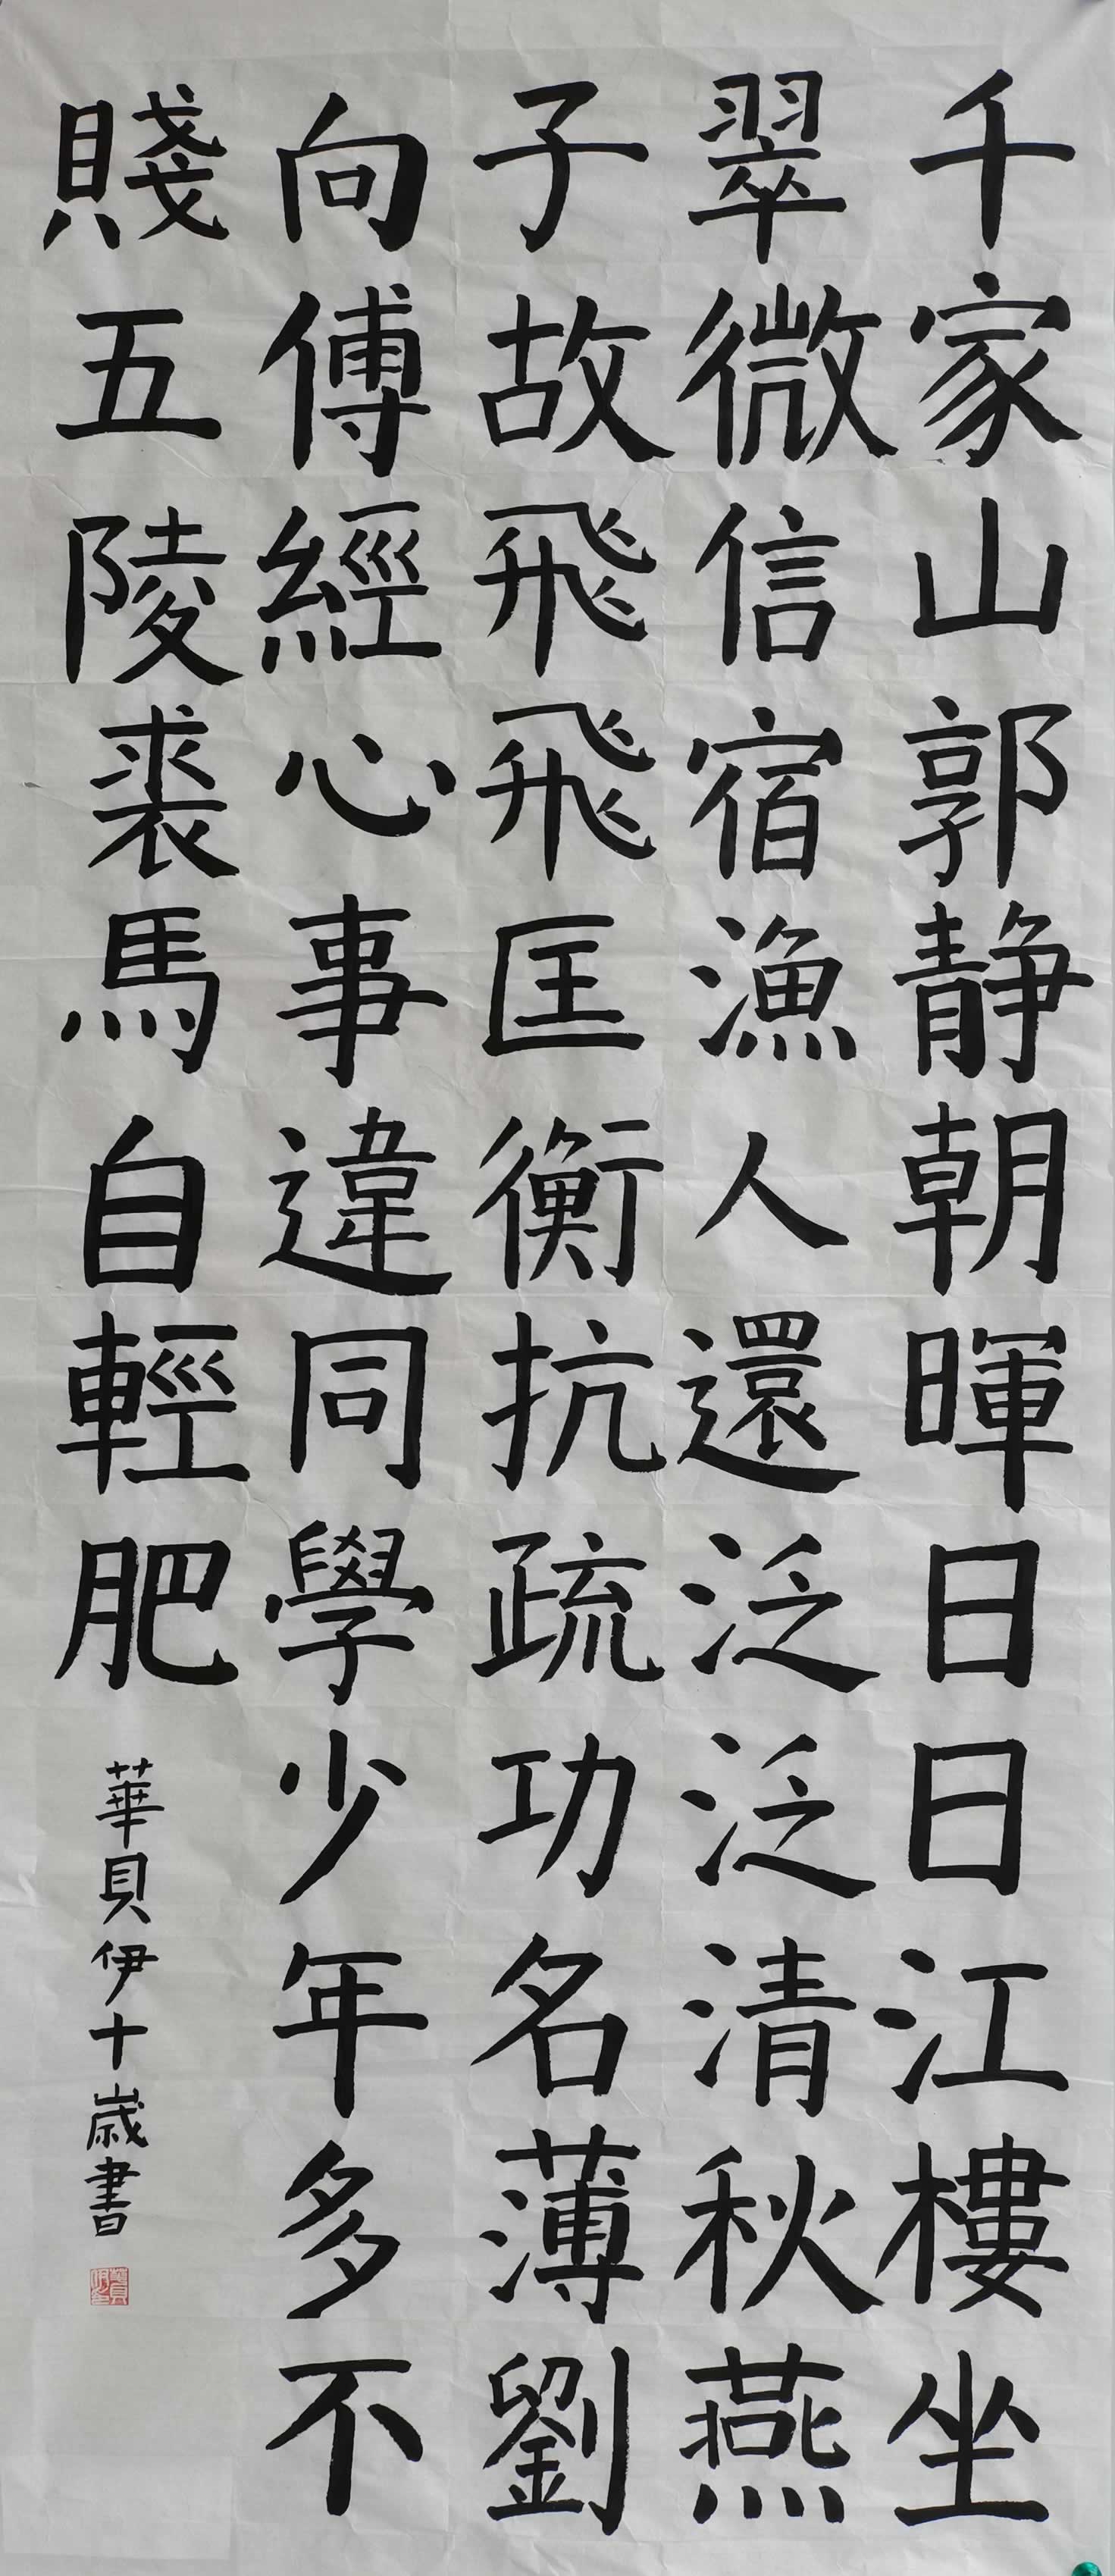 千家山郭静朝暉日日江樓坐
翠微信宿漁人還泛泛清秋燕
子故飛飛匡衡抗疏功名薄劉
向傅經心事違同學少年多不
賤五陵裘馬自輕肥
華貝伊十歲書